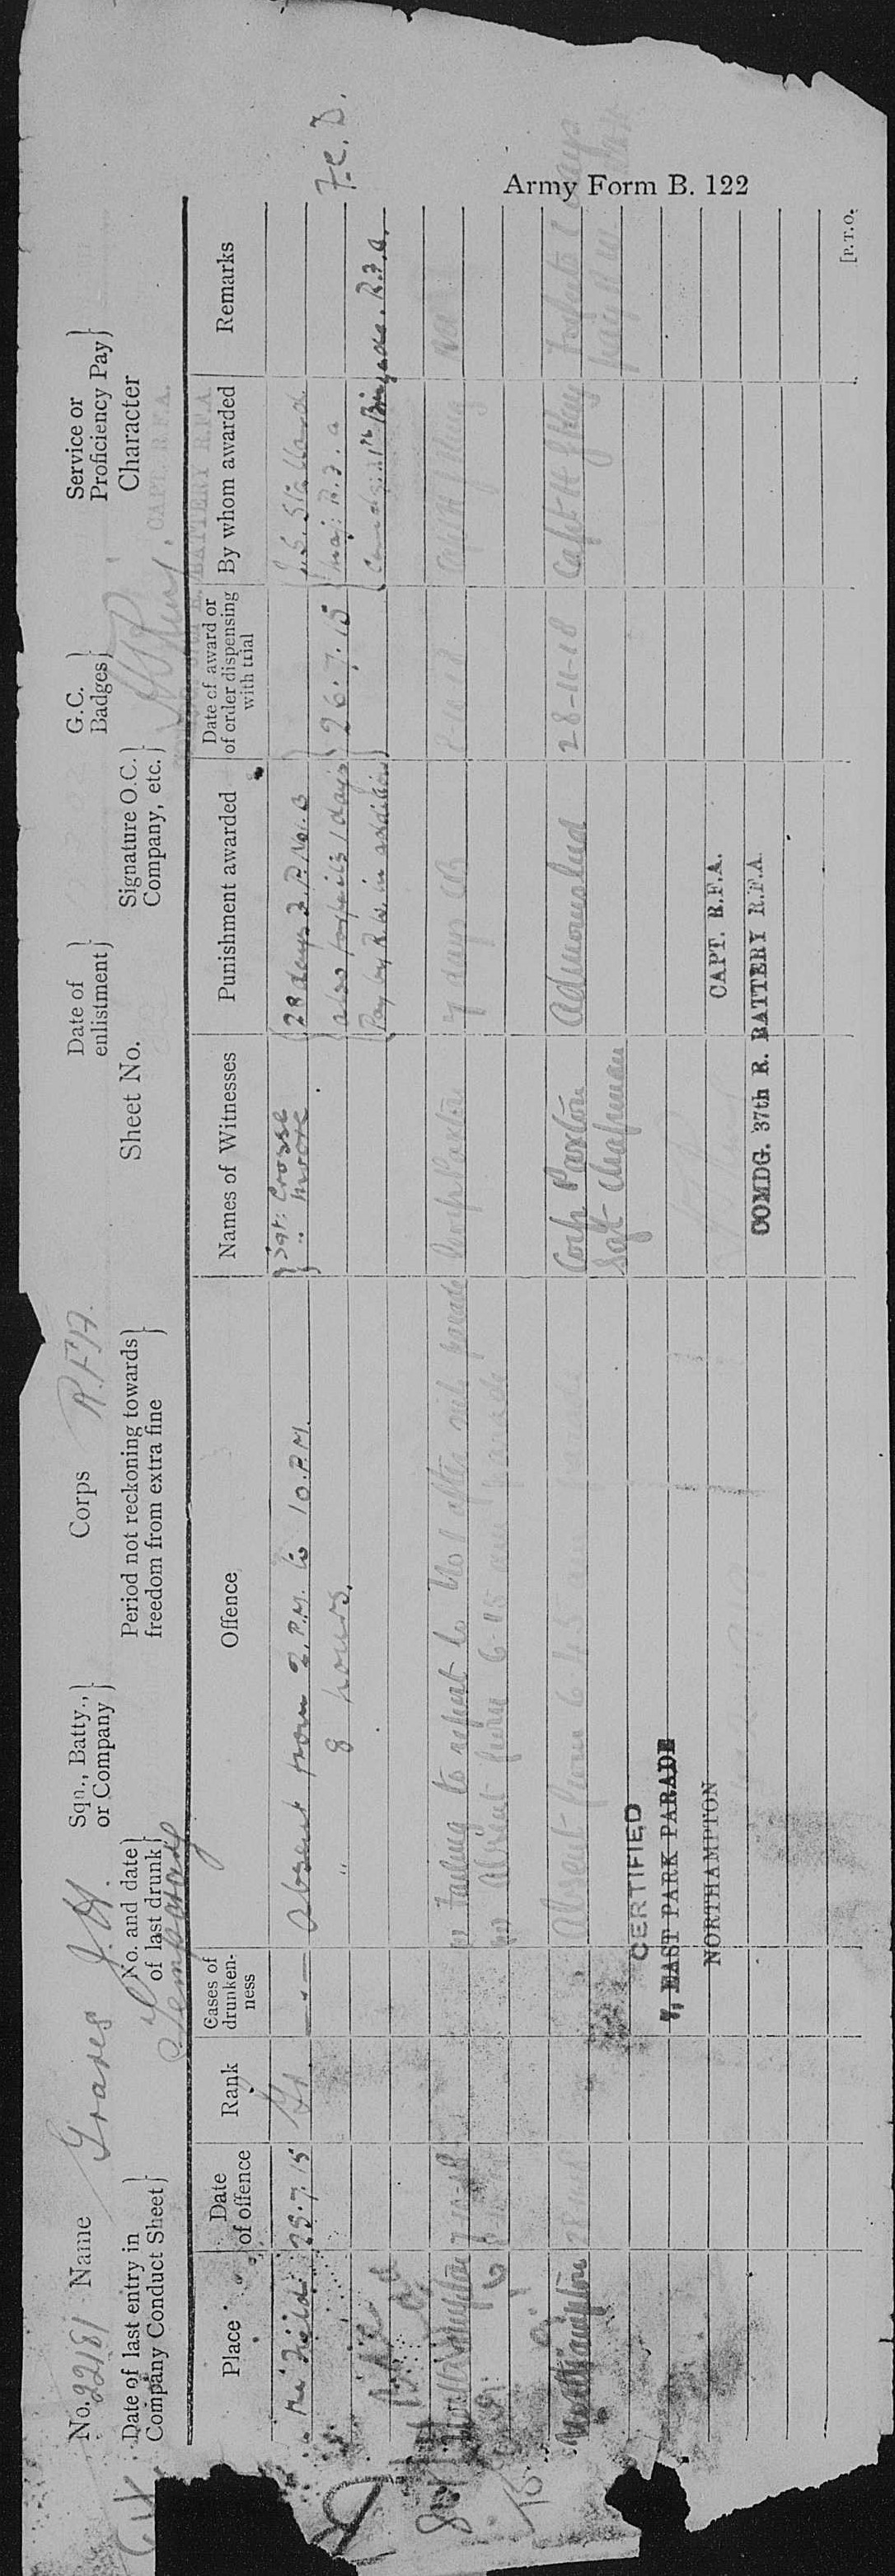 Army Form B. 122
No. 22181 Name Graves J.H. Sqn., Batty., or Company Corps R.F.A. Date of enlistment G.C. Badges Service or Proficiency Pay
Date of last entry in Company Conduct Sheet No. and date of last drunk Period not reckoning towards freedom from extra fine Sheet No. Signature O.C. Company, etc. Character
Temporary
CAPT. R.F.A.
BATTERY R.F.A.
Place Date of offence Rank Cases of drunkenness Offence Names of Witnesses Punishment awarded Date of award or of order dispensing with trial By whom awarded Remarks
Field 23.7.15 Gr. Absent from 2.P.M. to 10.P.M. Sgt: Crosse 28 days F.P. No. 3
" 8 hours. " Moore also forfeits 1 days 26.7.15 Maj: R.F.A F.C.D.
Pay by R.W. in addition Brigade. R.F.A.
Northampton (1) Failing to report to No 1 after parade Corp Paxton 7 days CB 8-11-18 Capt H
(2) Absent from 6-15 am parade
Northampton 28 Absent from 6-45 am parade Corp Paxton Admonished 28-11-18 Capt H Forfeits 1 days
Sgt Chapman pay R W
CERTIFIED
7, EAST PARK PARADE
NORTHAMPTON
CAPT. R.F.A.
COMDG. 37th R. BATTERY R.F.A.
[P.T.O.